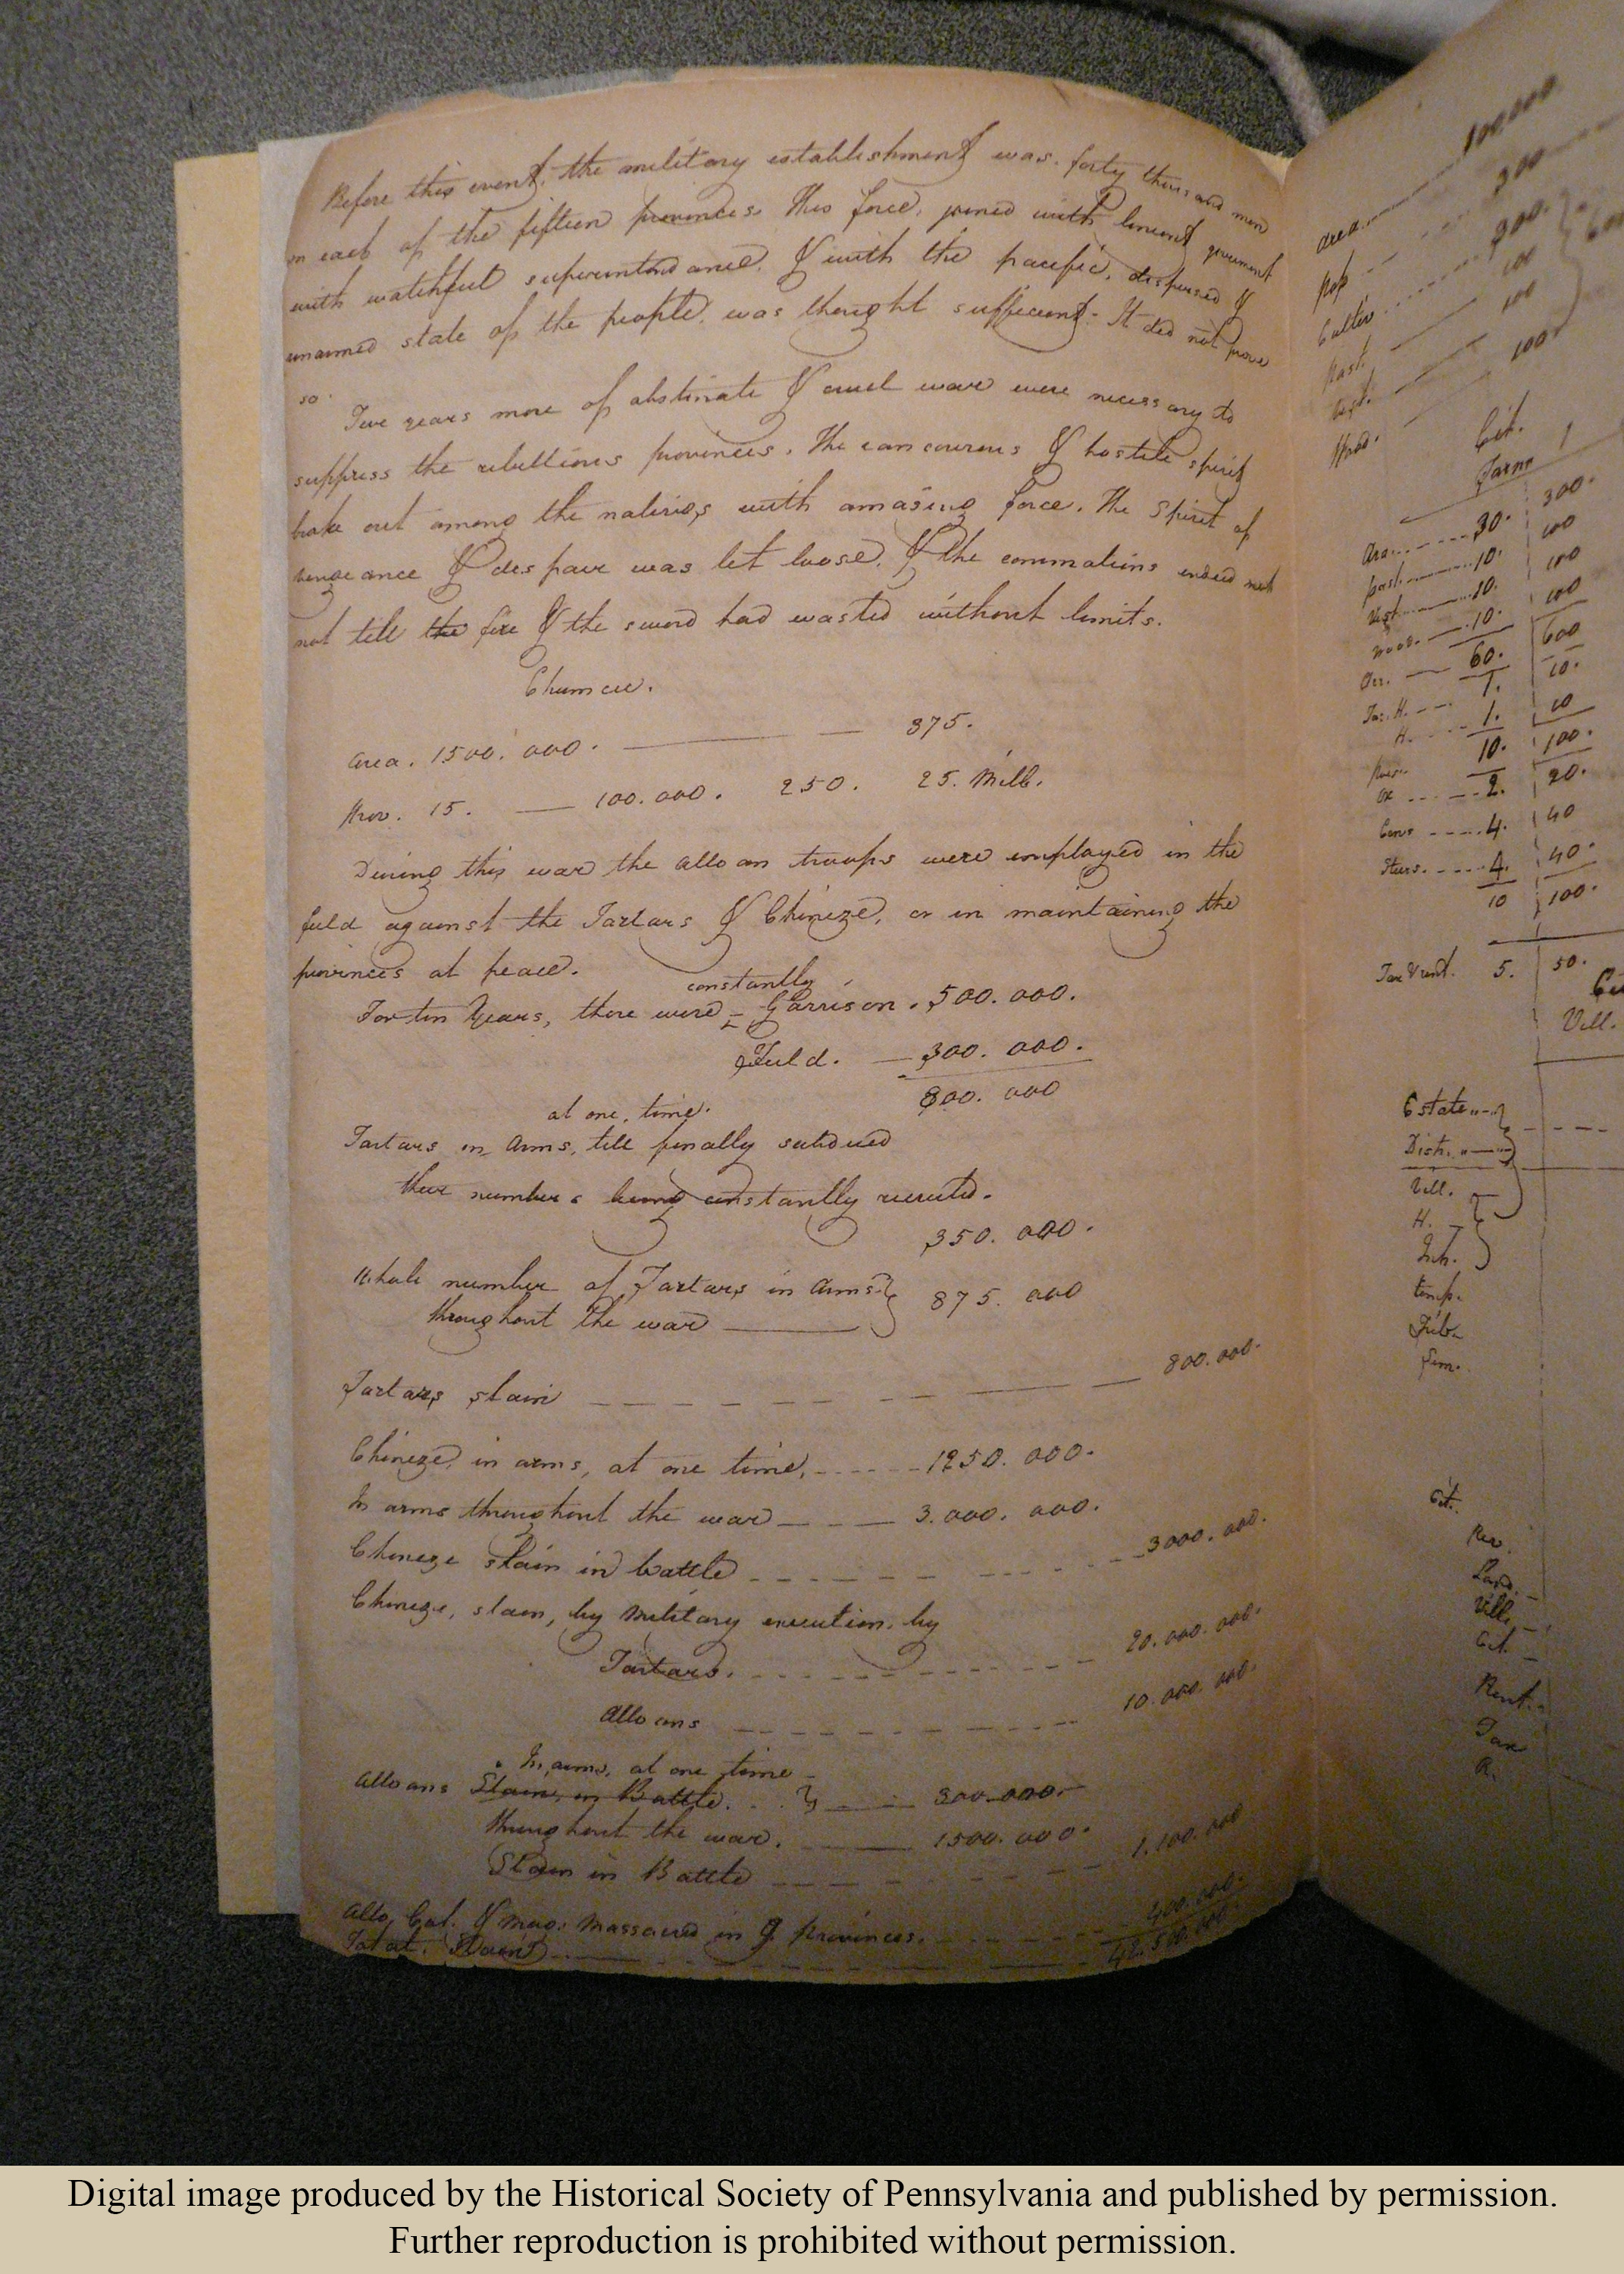 Before this event, the military establishment was forty thousand men
in each of the fifteen provinces. This force, joined with lenient goverment
with watchful superintendance, & with the pacific, dispersed &
unarmed state of the people, was thought sufficient. It did not prove
so.
Two years more of obstinate & cruel war were necessary to
suppress the rebellious provinces. The rancourous & hostile spirit
broke out among the natives with amazing force. The spirit of
vengeance & despair was let loose, & the commotions ended not
not till the fire & the sword had wasted without limits.
area. 1500. 000. 375.
Prov. 15. 100. 000. 250. 25. Mill.
During this war the Alloan troops were employed in the
field against the Tartars & Chineze, or in maintaining the
provinces at peace.
constantly
For ten Years, there were Garrison. 500. 000.
Field. 300. 000.
800. 000
at one, time.
Tartars in Arms, till finally subdued
their numbers being constantly recruited.
350. 000.
Whole number of Tartars in arms } 875. 000
throughout the war
Tartars slain 800. 000.
Chineze, in arms, at one time, 1250. 000.
In arms throughout the war 3. 000. 000.
Chineze slain in battle 3000. 000.
Chineze, slain, by Military execution, by
Tartars. 20. 000. 000.
Alloans 10. 000. 000.
In, arms, at one time
Alloans Slain, in Battle. } 300. 000.
throughout the war. 1500. 000.
Slain in Battle 1. 100. 000
Allo, Col. & Mug: Massacred in 9 provinces. 400. 000.
Total. Slain
area 100,000
Pop 300
Cultiv. 200.
Past. 100
100
100
Cit.
Farm 1
Ara. 30. 300.
past. 10. 100
10. 100
Wood. 10. 100
60. 600
1. 10.
H. 1. 10
10. 100.
Ox 2. 20.
Cows 4. 40
Steers. 4. 40.
10 100.
Tax & rent. 5. 50.
Vill.
Estate
Distr.
Vill.
H.
Inh.
temp.
Cit.
Rev.
Land.
Vill.
Cit.
Rent.
Tax
Digital image produced by the Historical Society of Pennsylvania and published by permission.
Further reproduction is prohibited without permission.